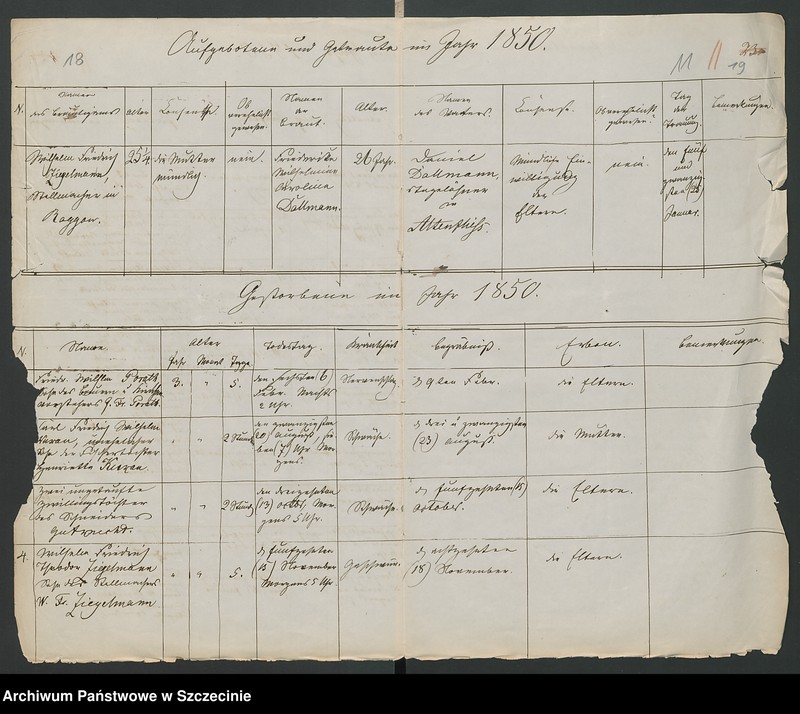 18
Aufgebotene und Getraute im Jahr 1850.
11 19
N. Namen des Bräutigams Alter Consens. Ob verehelicht gewesen. Namen der Braut. Alter. Namen des Vaters. Consense. Ob verehelicht gewesen? Tag der Trauung. Bemerkungen.
Wilhelm Friedrich
Ziegelmann,
Stellmacher in
Roggow.
25 1/4
die Mutter
mündig.
nein.
Friederike
Wilhelmine
Karoline
Dallmann.
26 Jahr.
Daniel
Dallmann,
Tagelöhner
in
Altenfließ.
Mündliche Ein-
willigung
der
Eltern.
nein.
den fünf
und
zwanzig-
sten (25)
Januar.
Gestorbene im Jahr 1850.
N. Namen Alter Todestag. Krankheit Begräbniß. Erben. Bemerkungen.
Jahr Monat Tage
Friedr. Wilhelm Porath
Sohn des Bauern u Kirchen-
vorstehers J. Fr. Porath.
3. " 5.
den sechsten (6)
Febr. Nachts
2 Uhr.
Nervenschlag
d 9ten Febr.
die Eltern.
Carl Friedrich Wilhelm
unehelicher
Sohn der
Henriette
" " 2 Stund
den zwanzigsten
(20) August, sie-
ben (7) Uhr Mor-
gens.
Schwäche.
d drei u zwanzigsten
(23) August.
die Mutter.
Zwei ungetaufte
Zwillingstöchter
des Schneiders
" " 2 Stund
den dreizehnten
(13) October Mor-
gens 5 Uhr.
Schwäche.
d fünfzehnten (15)
October.
die Eltern.
4.
Wilhelm Friedrich
Theodor Ziegelmann
Sohn des Stellmachers
W. Fr. Ziegelmann
" " 5.
d fünfzehnten
(15) November
Morgens 5 Uhr
d achtzehnten
(18) November.
die Eltern.
Archiwum Państwowe w Szczecinie